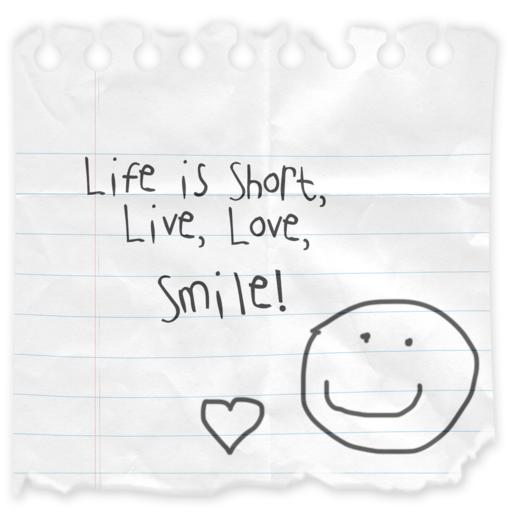 Life is Short,
Live, Love,
Smile!